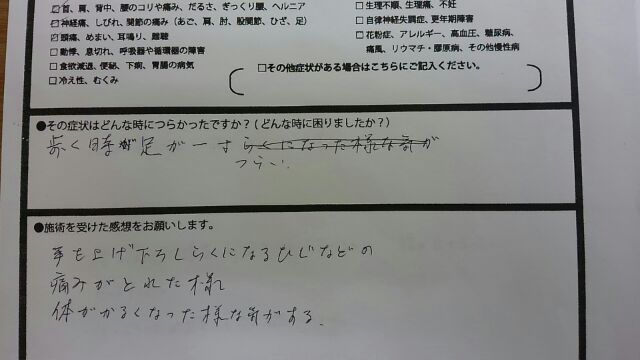 ☑首、肩、背中、腰のコリや痛み、だるさ、ぎっくり腰、ヘルニア
☑神経痛、しびれ、関節の痛み（あご、肩、肘、股関節、ひざ、足）
☑頭痛、めまい、耳鳴り、難聴
□動悸、息切れ、呼吸器や循環器の障害
□食欲減退、便秘、下痢、胃腸の病気
□冷え性、むくみ
□生理不順、生理痛、不妊
□自律神経失調症、更年期障害
□花粉症、アレルギー、高血圧、糖尿病、
痛風、リウマチ・膠原病、その他慢性病
□その他症状がある場合はこちらにご記入ください。
●その症状はどんな時につらかったですか？(どんな時に困りましたか？)
歩く時が足が一す らくになった様な気が
つらい.
●施術を受けた感想をお願いします。
手も上げ下ろしらくになるひじなどの
痛みがとれた様
体がかるくなった様な気がある.